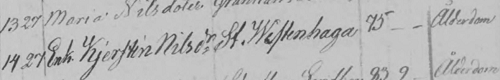 13 27 Maria Nilsdoter 75 - - Ålderdom
14 27 Enk. Kjerstin Nilsdr St. Westenhaga
83 9 Ålderdom